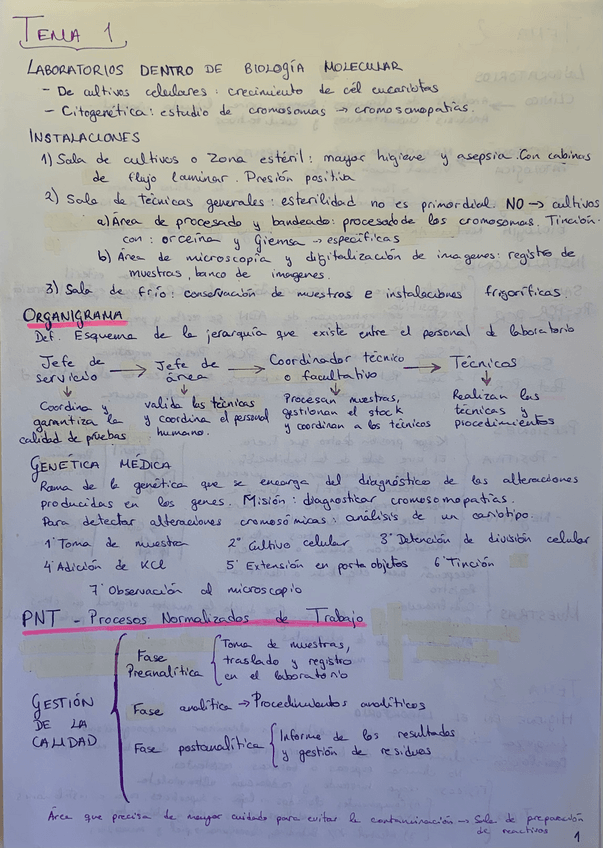 TEMA 1
LABORATORIOS DENTRO DE BIOLOGÍA MOLECULAR
- De cultivos celulares: crecimiento de cél eucariotas
- Citogenética: estudio de cromosomas → cromosomopatías.
INSTALACIONES
1) Sala de cultivos o Zona estéril: mayor higiene y asepsia. Con cabinas
de flujo laminar. Presión positiva
2) Sala de técnicas generales: esterilidad no es primordial. NO → cultivos
a) Área de procesado y bandeado: procesado de los cromosomas. Tinción
con: orceína y Giemsa → específicas
b) Área de microscopía y digitalización de imagenes: registro de
muestras, banco de imagenes.
3) Sala de frío: conservación de muestras e instalaciones frigoríficas.
ORGANIGRAMA
Def. Esquema de la jerarquía que existe entre el personal de laboratorio
Jefe de servicio → Jefe de área → Coordinador técnico o facultativo → Técnicos
↓ ↓ ↓ ↓
Coordina y garantiza la calidad de pruebas
valida las técnicas y coordina el personal humano.
Procesan muestras, gestionan el stock y coordinan a los técnicos
Realizan las técnicas y procedimientos
GENÉTICA MÉDICA
Rama de la genética que se encarga del diagnóstico de las alteraciones
producidas en los genes. Misión: diagnosticar cromosomopatías.
Para detectar alteraciones cromosómicas: análisis de un cariotipo.
1º Toma de muestra 2º Cultivo celular 3º Detención de división celular
4º Adición de KCl 5º Extensión en porta objetos 6º Tinción
7º Observación al microscopio
PNT - Procesos Normalizados de Trabajo
GESTIÓN DE LA CALIDAD
Fase Preanalítica
Toma de muestras,
traslado y registro
en el laboratorio
Fase analítica → Procedimientos analíticos
Fase postanalítica
Informe de los resultados
y gestión de residuos
Área que precisa de mayor cuidado para evitar la contaminación → Sala de preparación
de reactivos
1